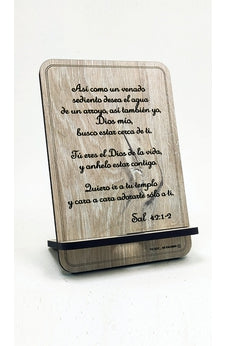 Así como un venado
sediento desea el agua
de un arroyo, así también yo,
Dios mío,
busco estar cerca de ti.
Tú eres el Dios de la vida,
y anhelo estar contigo.
Quiero ir a tu templo
y cara a cara adorarte sólo a ti.
Sal 42:1-2